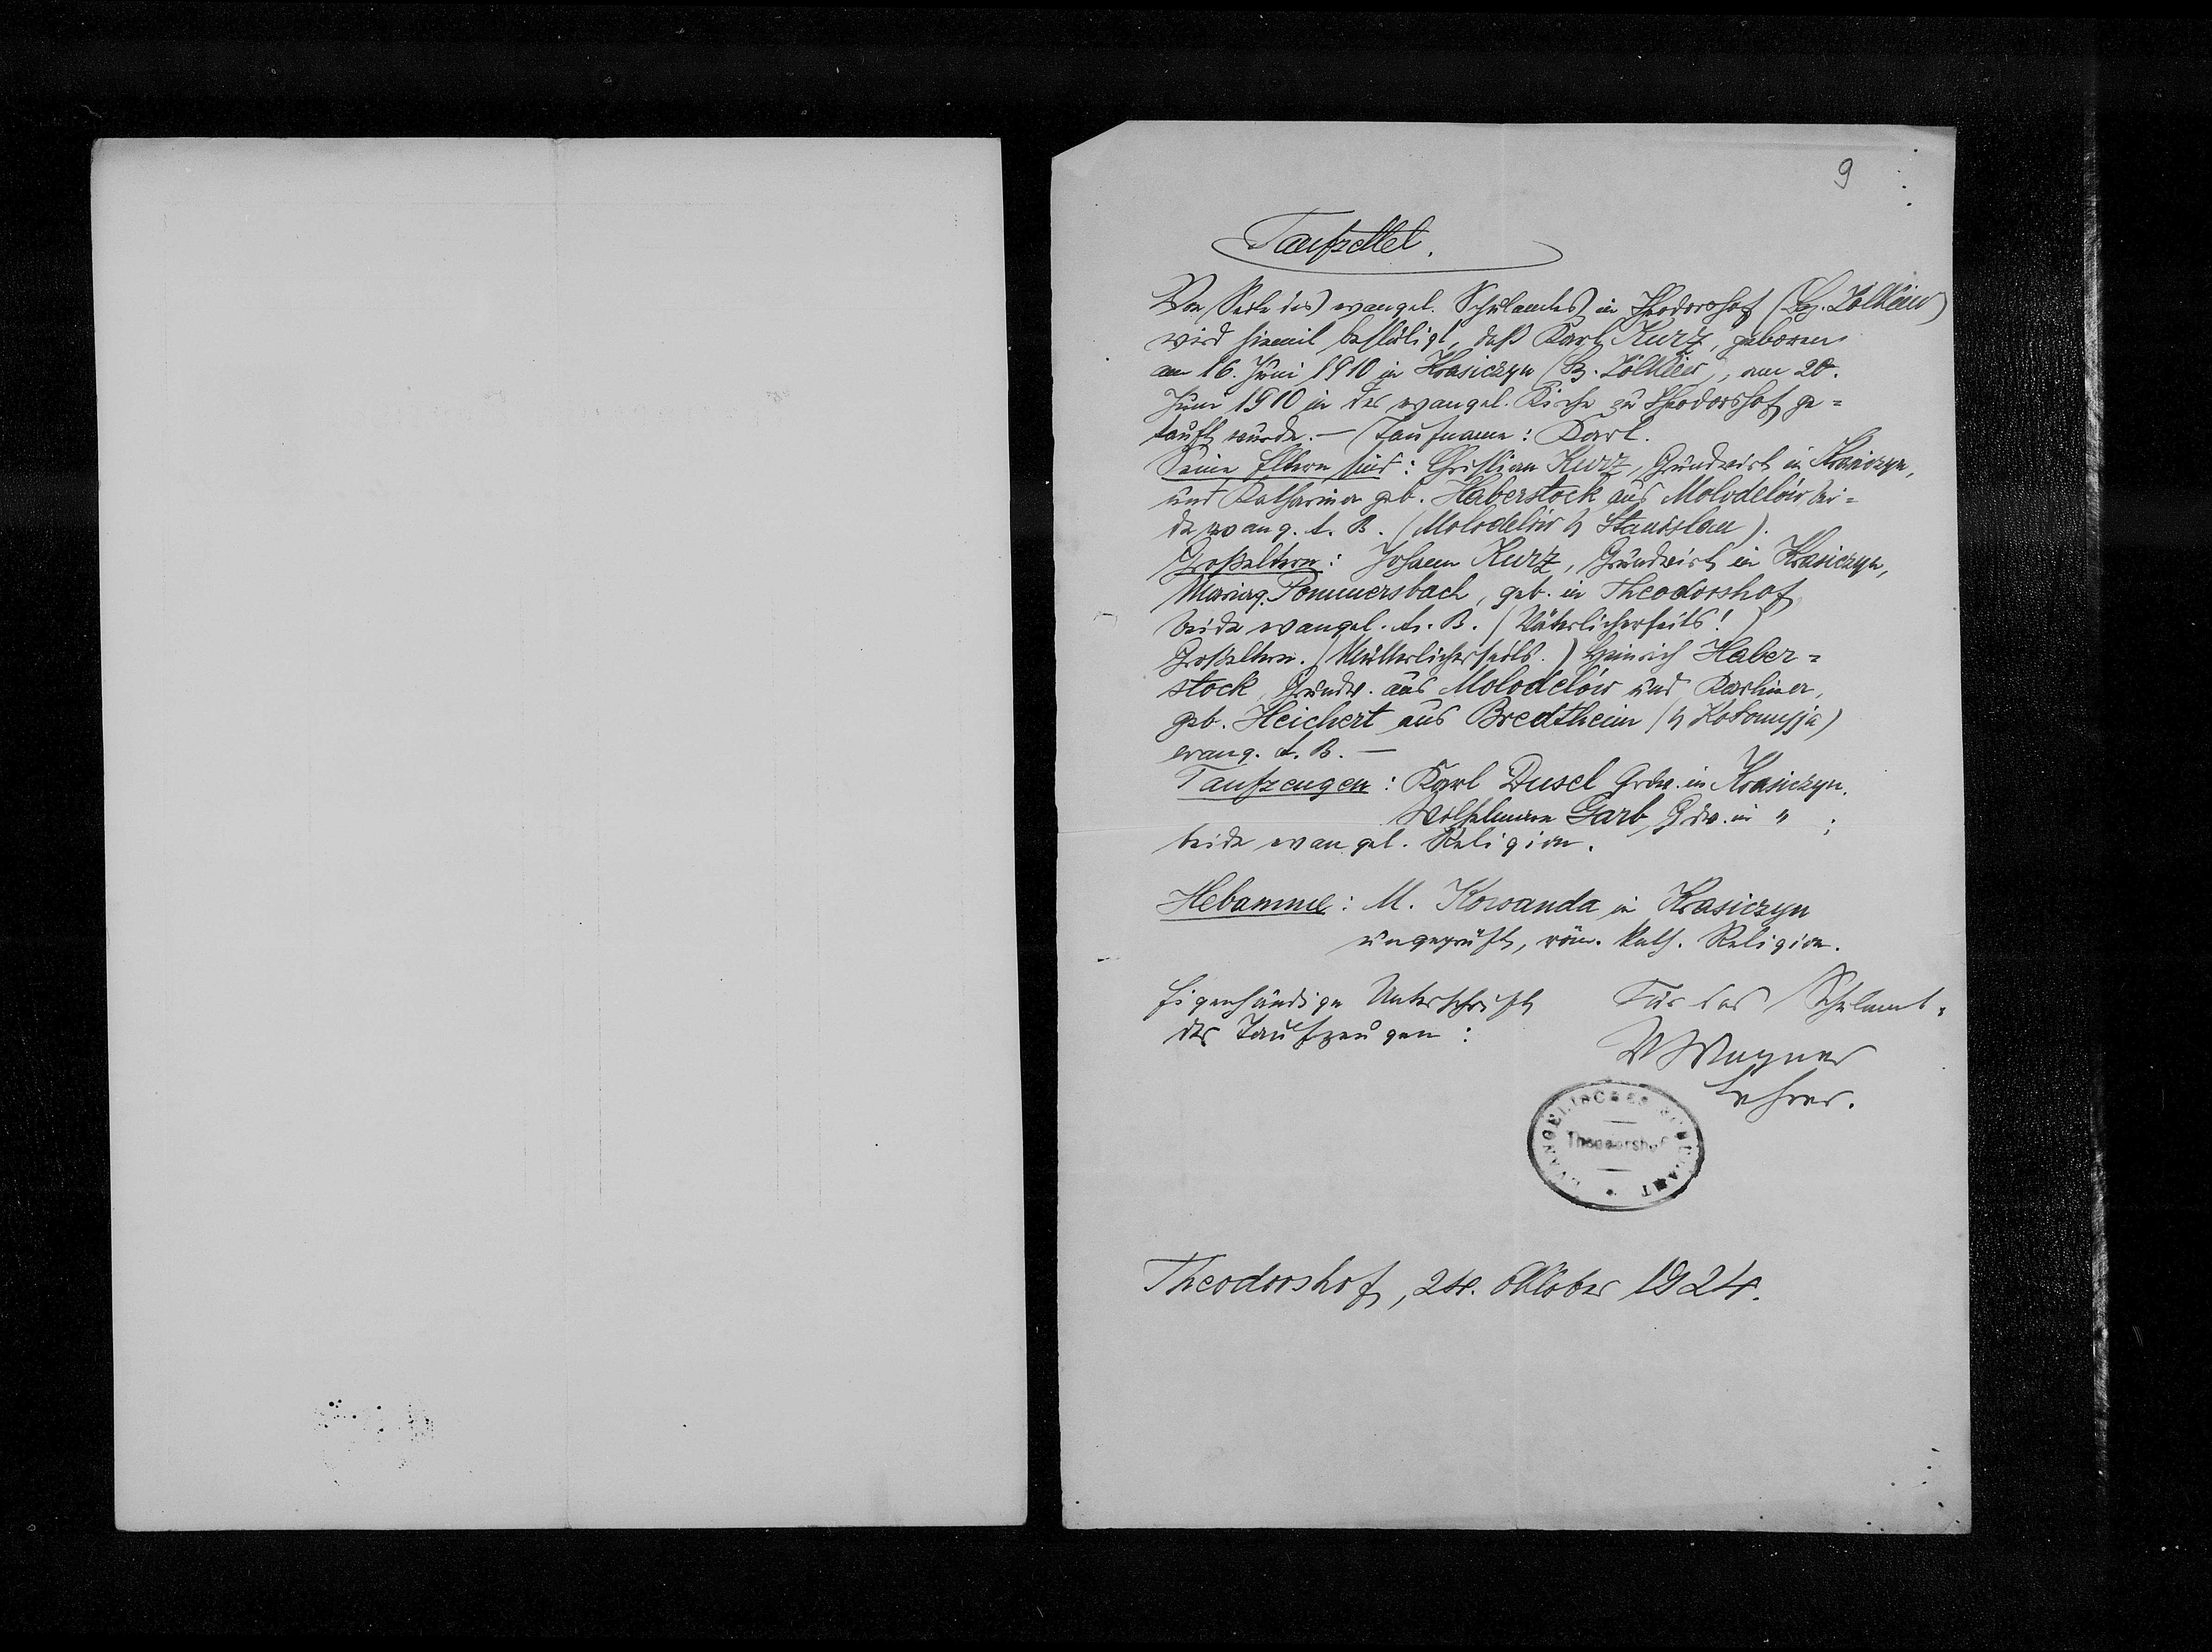 9
Taufzettel.
Von Seite des evangel. Schulamtes in Theodorshof (Bez. Żołkiew)
wird hiemit bestätigt, daß Karl Kurz, geboren
am 16. Juni 1910 in Krasiczyn (Bz. Żołkiew), am 20.
Juni 1910 in der evangel. Kirche zu Theodorshof ge=
tauft wurde. — Taufname: Karl.
Seine Eltern sind: Christian Kurz, Grundwirt in Krasiczyn,
und Katharina geb. Haberstock aus Molodelów bei=
de evang. A. B. (Molodelów b/ Stanislau).
Großeltern: Johann Kurz, Grundwirt in Krasiczyn,
Pommersbach, geb. in Theodorshof
beide evangel. A. B. (Väterlicherseits!)
Großeltern. (Mütterlicherseits.) Heinrich Haber=
stock, Grundw. aus Molodelów und
geb. Heichert aus Bredtheim (b/ Kołomyja)
evang. A. B. —
Taufzeugen: Karl Dusel Grdw. in Krasiczyn.
Wilhelmine Garb, Grdw. in " ;
beide evangel. Religion.
Hebamme: M. Kowanda in Krasiczyn
ungeprüft, röm. kath. Religion.
Eigenhändige Unterschrift Für das Schulamt:
der Taufzeugen:
Wagner
Lehrer.
EVANGELISCHES SCHULAMT
Theodorshof
Theodorshof, 24. Oktober 1924.